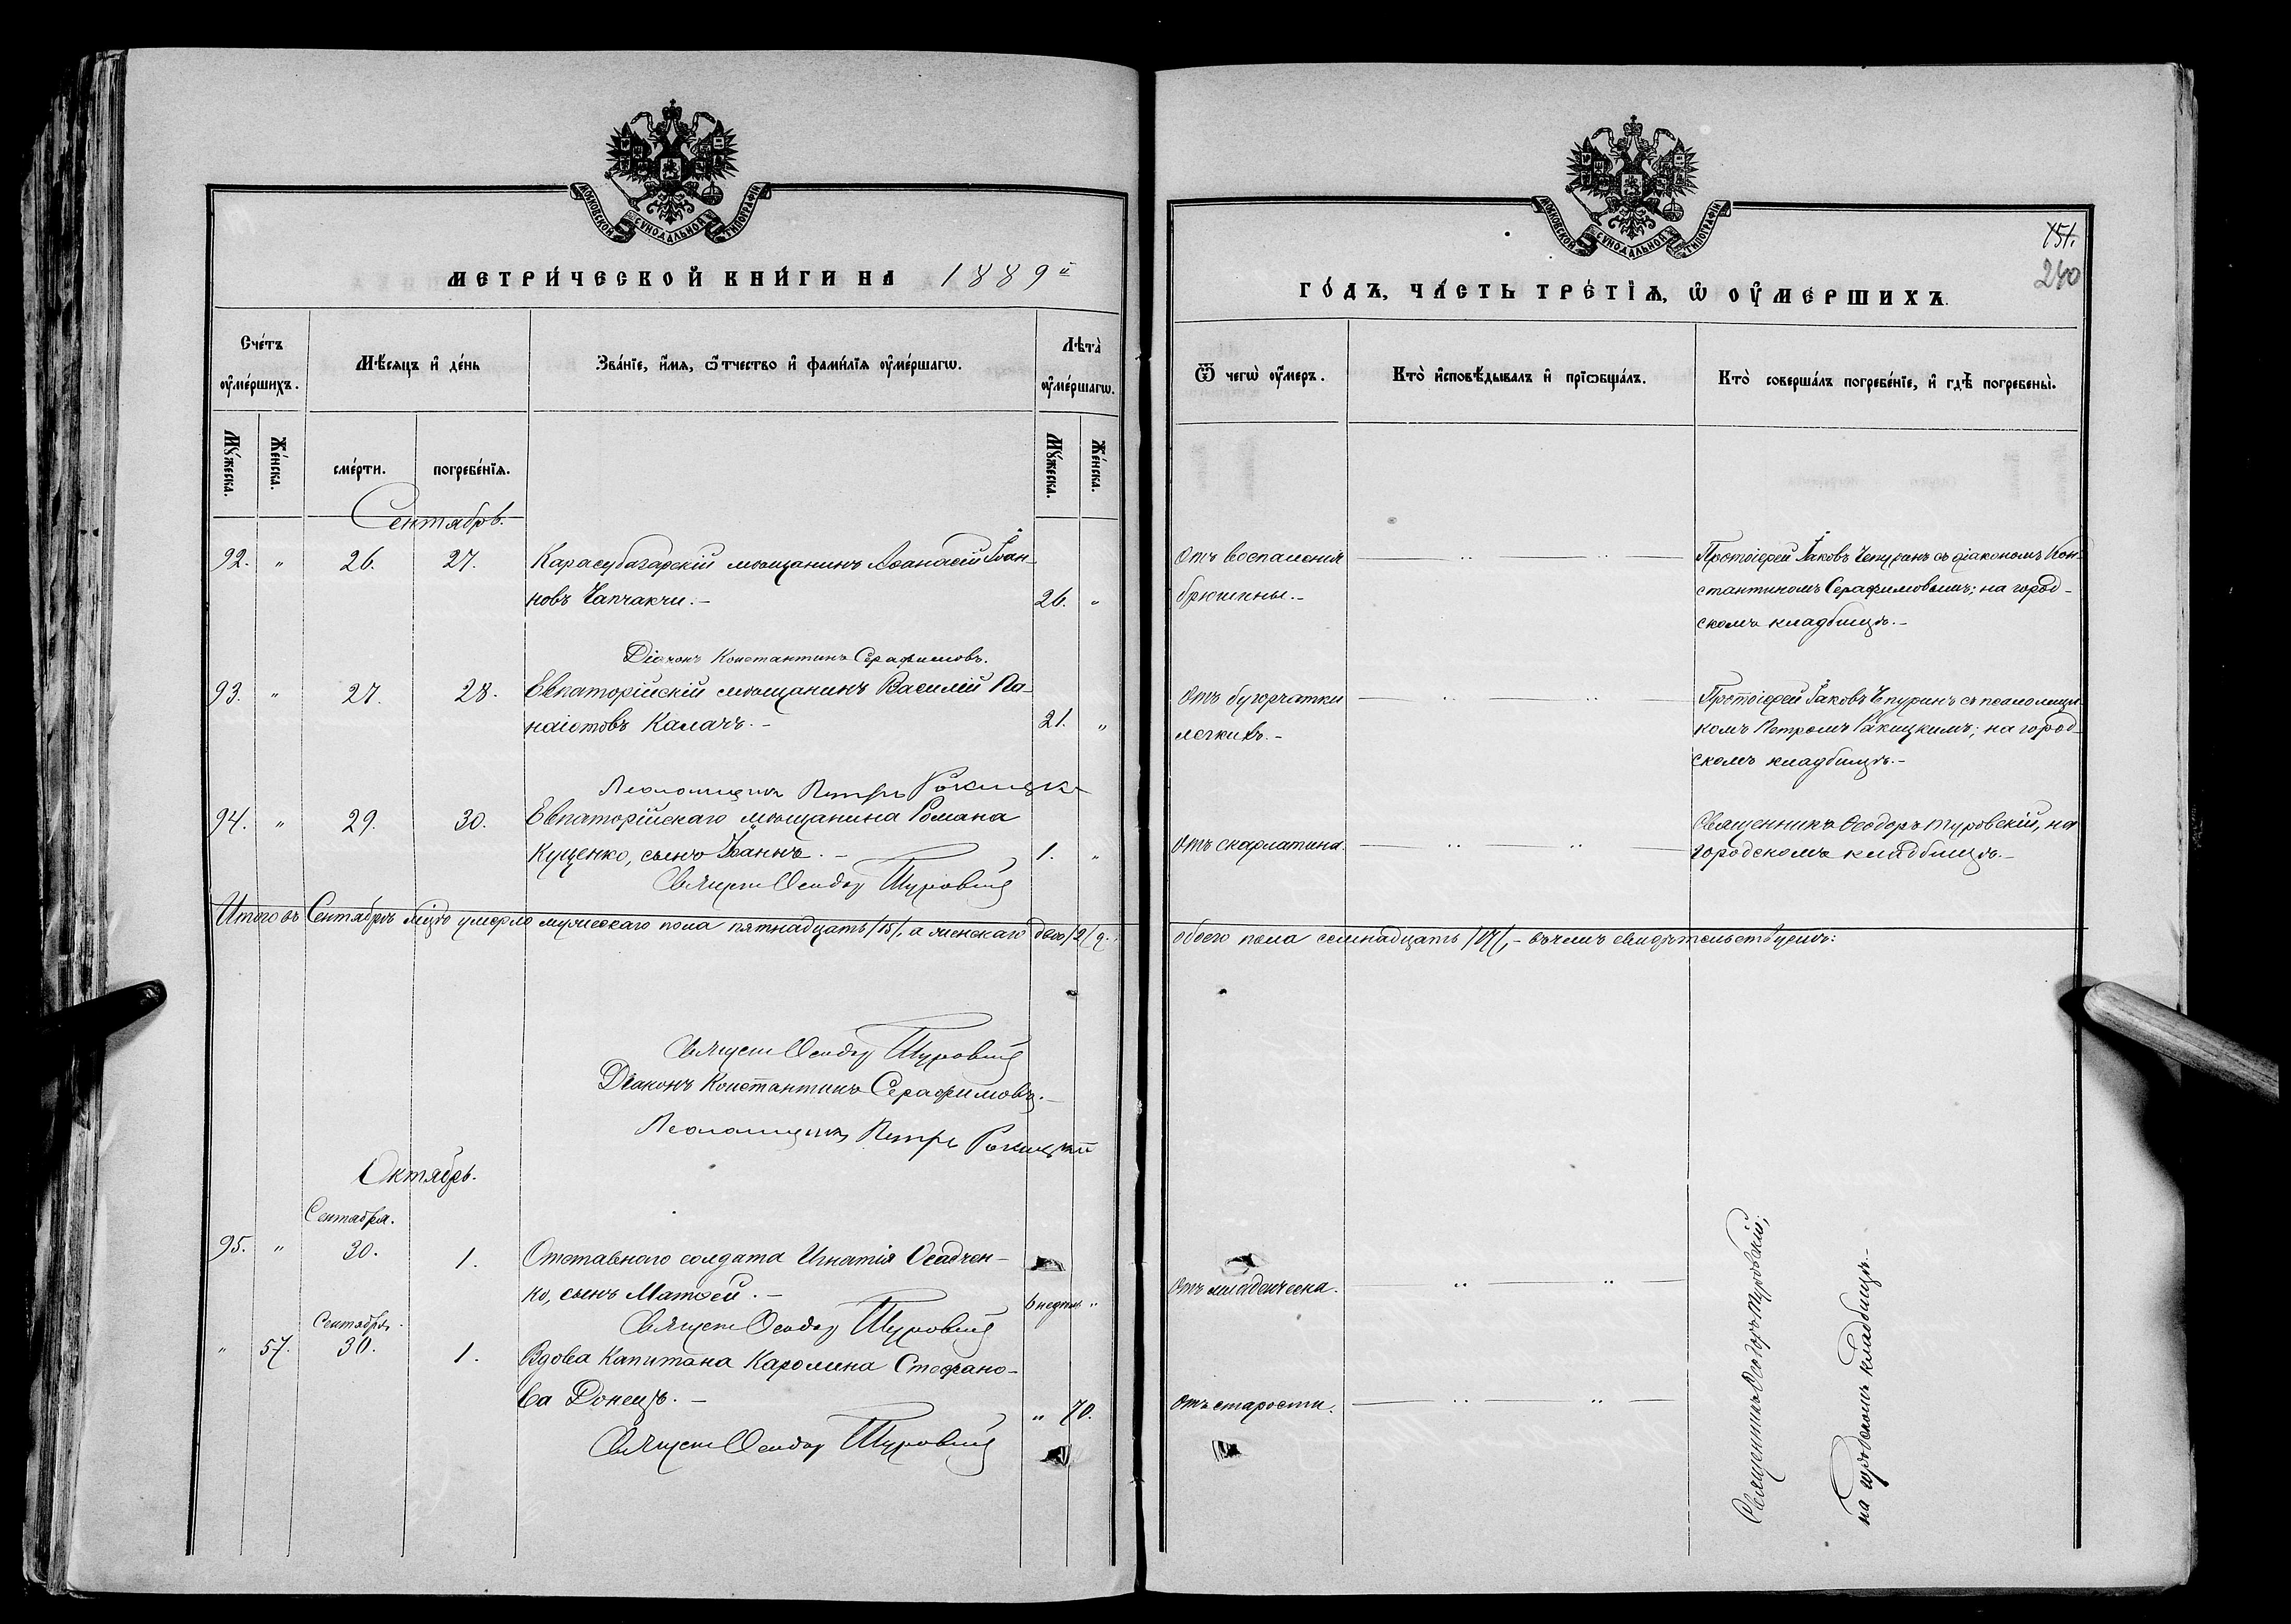 МОСКОВСКОЙ СѴНОДАЛЬНОЙ ТИПОГРАФІИ
МЕТРИ́ЧЕСКОЙ КНИ́ГИ НА 1889й
Сче́тъ ᲂу҆ме́ршихъ.
Мѣ́сяцъ и҆ де́нь
Зва́нїе, и҆́мя, ѻ҆́тчество и҆ фами́лїя ᲂу҆ме́ршагѡ.
Лѣта̀ ᲂу҆ме́ршагѡ.
Мꙋ́жеска.
Же́нска.
сме́рти.
погребе́нїя.
Мꙋ́жеска.
Же́нска.
Сентябрь.
92. " 26. 27. Карасубазарскій мѣщанинъ Аѳанасій Іоан-
новъ Чапчакчи. – 26. "
Діаконъ Константинъ Серафимовъ.
93. " 27. 28. Евпаторійскій мѣщанинъ Василій Па-
наіотовъ Калачъ. – 21. "
Псаломщикъ Петръ Рокицкій
94. " 29. 30. Евпаторійскаго мѣщанина Романа
Куценко, сынъ Іоаннъ. – 1. "
Священ Ѳеодор Туровский
Итого въ Сентябрѣ м-цѣ умерло мужескаго пола пятнадцать /15/, а женскаго двѣ /2/ д.
Священ Ѳеодор Туровский
Діаконъ Константинъ Серафимовъ. –
Псаломщикъ Петръ Рокицкий
Октябрь.
Сентября.
95. " 30. 1. Отставнаго солдата Игнатія Осадчен-
ко, сынъ Матѳей. – 6 недѣль "
Священ Ѳеодор Туровский
Сентября.
" 57. 30. 1. Вдова Капитана Каролина Стефано-
ва Донецъ. – " 70.
Священ Ѳеодор Туровский
МОСКОВСКОЙ СѴНОДАЛЬНОЙ ТИПОГРАФІИ
151.
240
ГО́ДЪ, ЧА́СТЬ ТРЕ́ТЇѦ, Ѡ҆ ОУ҆МЕ́РШИХЪ.
Ѿ чегѡ̀ ᲂу҆́меръ.
Кто̀ и҆сповѣ́дывалъ и҆ прїѡбща́лъ.
Кто̀ соверша́лъ погребе́нїе, и҆ гдѣ̀ погребены̀.
Отъ воспаленія
брюшины. –
Протоіерей Іаковъ Чепуринъ съ діакономъ Кон-
стантиномъ Серафимовымъ; на город-
скомъ кладбищѣ. –
Отъ бугорчатки
легкихъ. –
Протоіерей Іаковъ Чепуринъ съ псаломщи-
комъ Петромъ Рокицкимъ; на город-
скомъ кладбищѣ. –
Отъ скарлатина.
Священникъ Ѳеодоръ Туровскій, на
городскомъ кладбищѣ. –
обоего пола семнадцать /17/, – въ чемъ свидѣтельствуемъ:
Отъ младенческа.
Отъ старости.
Священникъ Ѳеодоръ Туровскій;
на городскомъ кладбищѣ. –